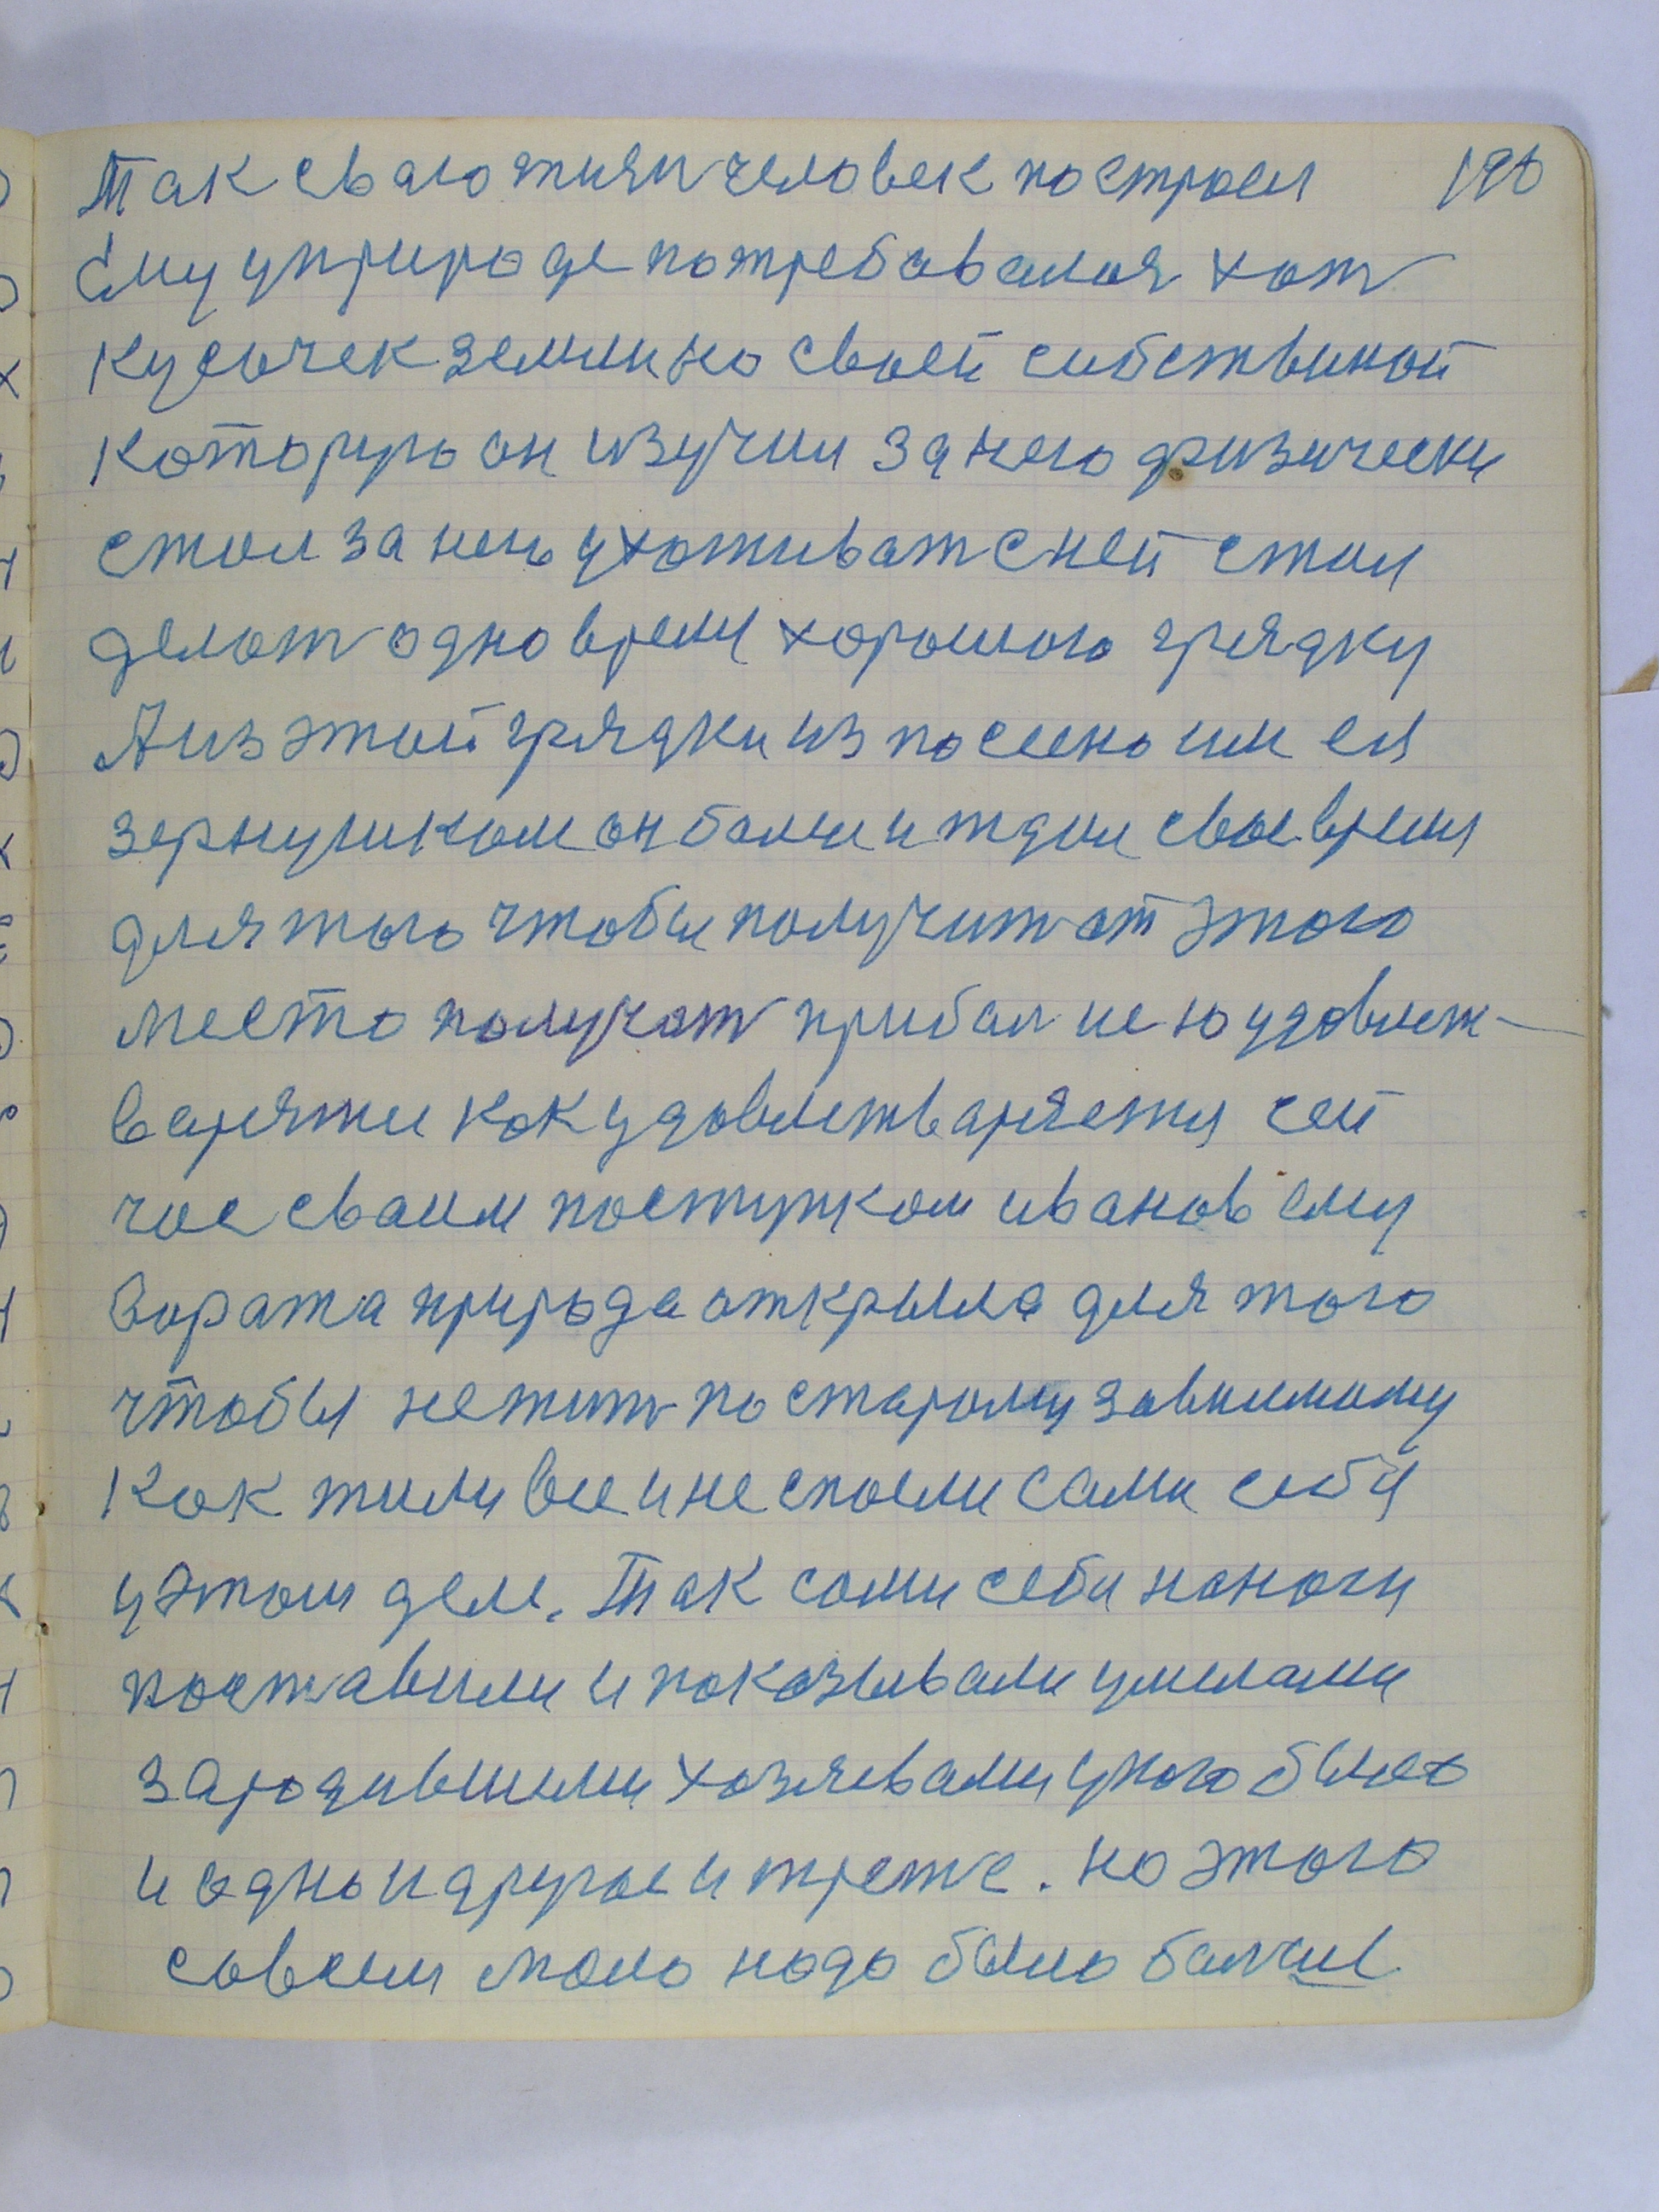 Так сваю жизн человек построел 190
Ему уприроде потребавалоя хот
кусочек земли но своей собственой
которую он изучил за него физически
стал за нею ухаживат сней стал
делат одно время хорошаю грядку
А из этой грядки из посеено им ея
зернушком он бален ждал свое время
для того чтобы получит от этого
место получат прибал нею удовлет-
варятие как удовлетваряется сей
час сваим поступком иванов ему
Вората природа открыла для того
чтобы нежить по старому
как жили все и не спасли сами себя
у этом деле. Так сами себя наноги
поставили и показывали умелами
зародившими хозяевами укого было
и одно и другое и третє. но этого
совсем мало надо было